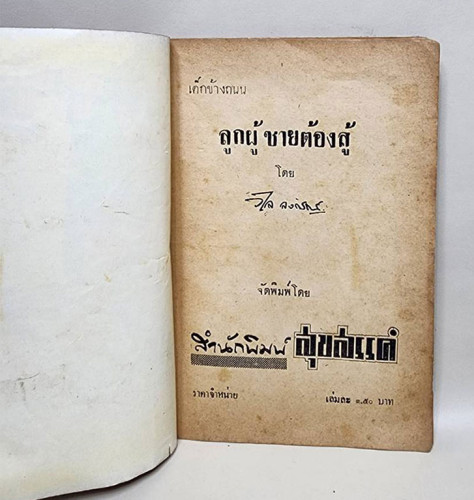 เด็กข้างถนน
ลูกผู้ชายต้องสู้
โดย
จัดพิมพ์โดย
สำนักพิมพ์ สุขสรรค์
ราคาจำหน่าย เล่มละ ๓.๕๐ บาท